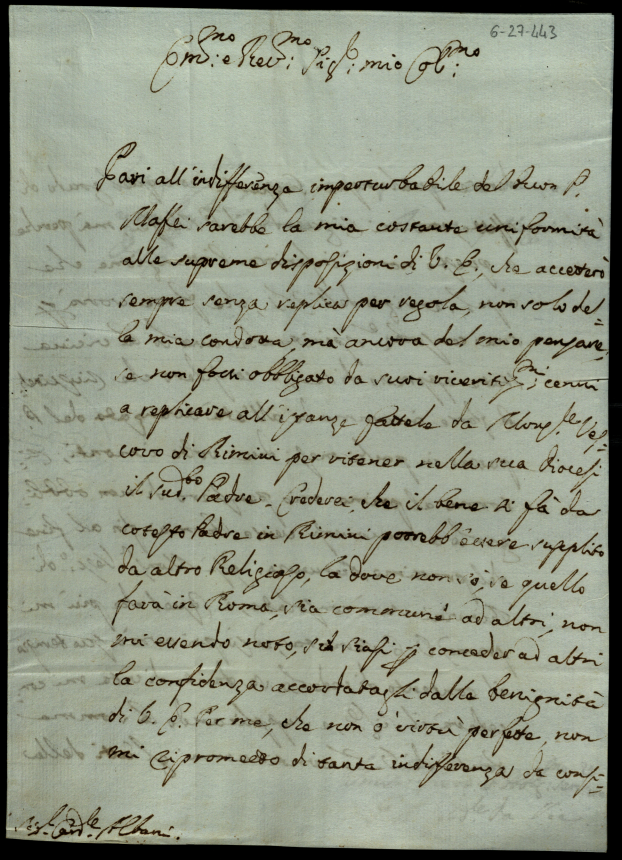 6-27-443
Em.mo e Rev.mo Sig.r mio Ol.mo
Pari all'indifferenza imperturbabile del buon P.
Maffei sarebbe la mia costante uniformità
alle supreme disposizioni di V. E., che accetterò
sempre senza replica per regola, non solo del=
la mia condotta, mà ancora del mio pensare,
se non fossi obbligato da suoi riveriti.mi cenni
a replicare all'istanze fattele da Mons.re Ves=
covo di Rimini per ritener nella sua Diocesi
il sud.to Padre. Crederei che il bene si fà da
cotesto Padre in Rimini potrebb'essere supplito
da altro Religioso, la dove non sò, se quello
farà in Roma, sia commune ad altri, non
mi essendo noto, siasi p conceder ad altri
la confidenza accordatagli dalla benignità
di V. E. Per me, che non ò virtù perfette, non
mi riprometto di tanta indifferenza da cons=
Sig.r Card.le Albani.